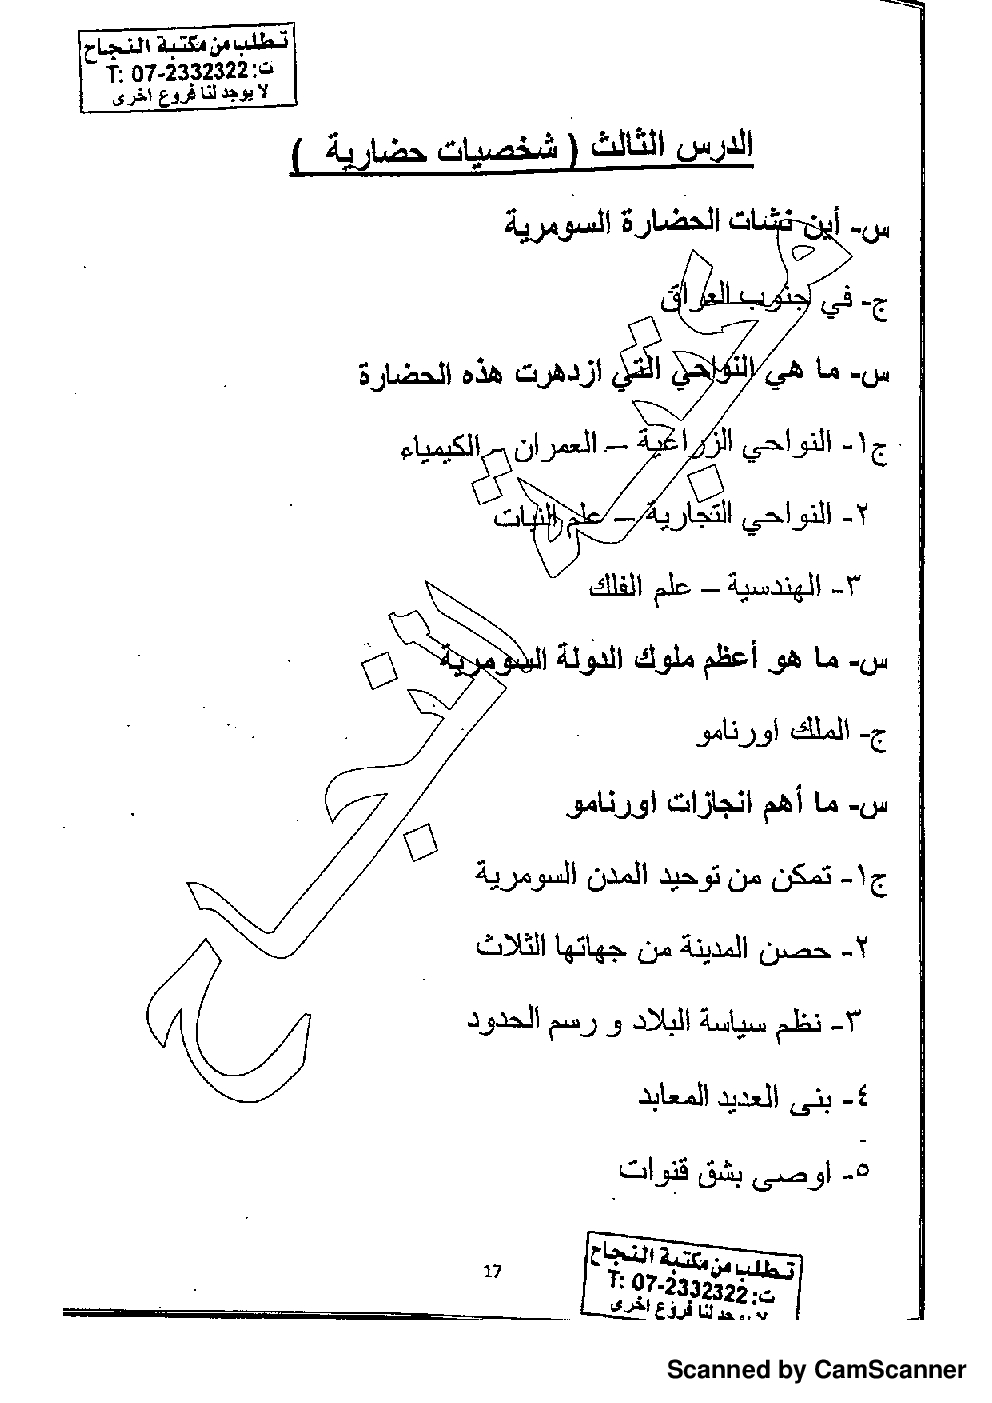 تطلب من مكتبة النجاح
ت: T: 07-2332322
لا يوجد لنا فروع اخرى
الدرس الثالث ( شخصيات حضارية )
س- أين نشات الحضارة السومرية
ج- في جنوب العراق
س- ما هي النواحي التي ازدهرت هذه الحضارة
ج١- النواحي الزراعية – العمران – الكيمياء
٢- النواحي التجارية – علم النبات
٣- الهندسية – علم الفلك
س- ما هو أعظم ملوك الدولة السومرية
ج- الملك اورنامو
س- ما أهم انجازات اورنامو
ج١- تمكن من توحيد المدن السومرية
٢- حصن المدينة من جهاتها الثلاث
٣- نظم سياسة البلاد و رسم الحدود
٤- بنى العديد المعابد
٥- اوصى بشق قنوات
مكتبة النجاح
17
تطلب من مكتبة النجاح
ت: T: 07-2332322
لا يوجد لنا فروع اخرى
Scanned by CamScanner